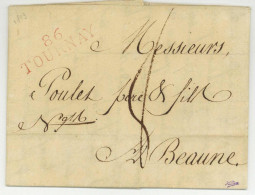 86
TOURNAY
Messieurs,
Poulet père & fils
Negts.
A Beaune.